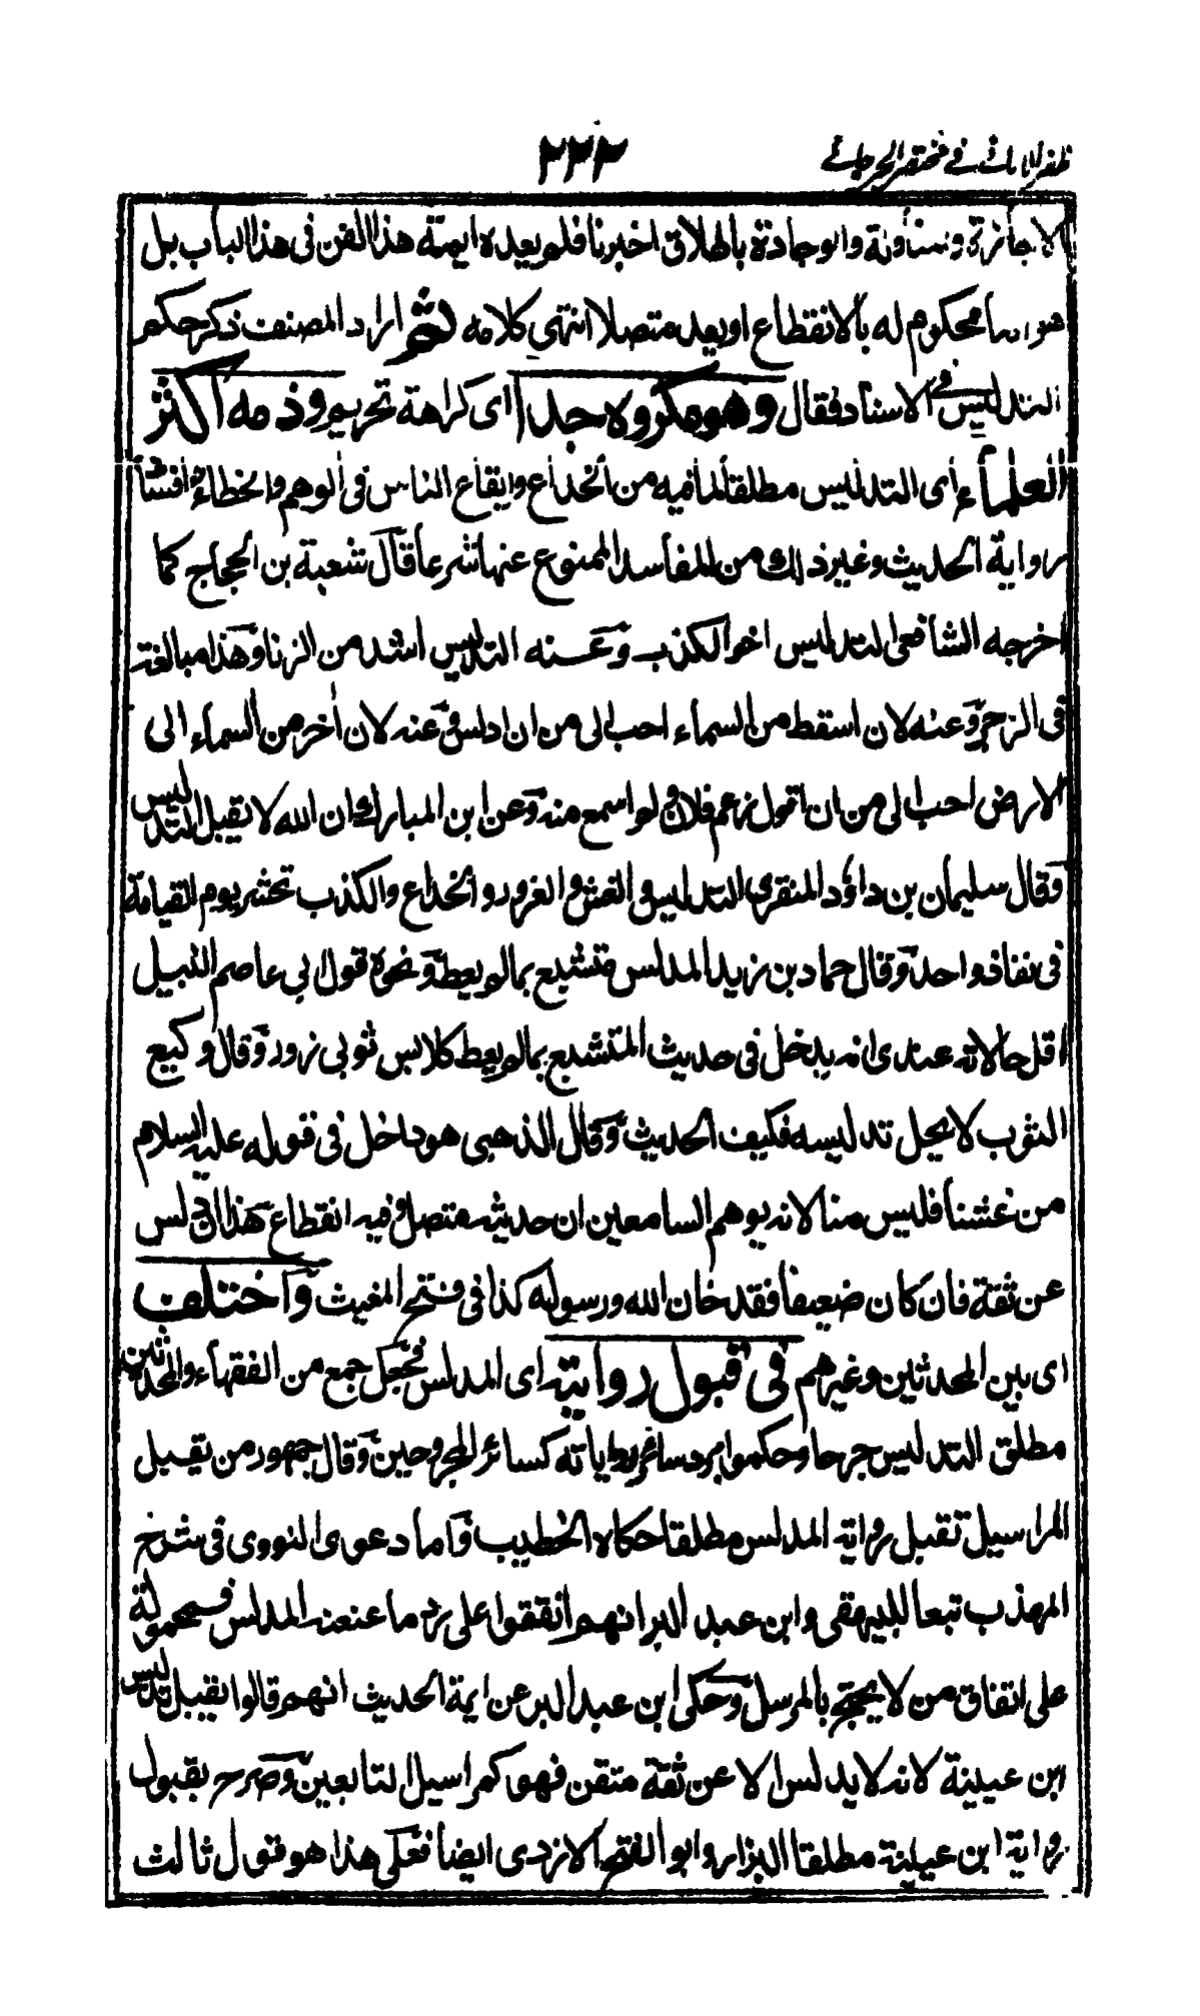 ظفر الاماني في مختصر الجرجاني
٢٣٢
كالاجازة ومناولة والوجادة باطلاق اخبرنا فلم يعده ايمة هذا الفن في هذا الباب بل
هو محكوم له بالانقطاع او يعد متصلا انتهى كلامه ثم اراد المصنف ذكر حكم
التدليس في الاسناد فقال وهو مكروه جدا اى كراهة تحريم وذمه اكثر
العلماء اى التدليس مطلقا لما فيه من الخداع وايقاع الناس في الوهم والخطاء وافشاء
رواية الحديث وغير ذلك من المفاسد الممنوع عنها شرعا قال شعبة بن الحجاج كما
اخرجه الشافعى التدليس اخو الكذب وعنه التدليس اشد من الزنا وهذا مبالغة
فى الزجر وعنه لان اسقط من السماء احب الى من ان ادلس وعنه لان اخر من السماء الى
الارض احب الى من ان اقول زعم فلان ولو اسمع منه وعن ابن المبارك ان الله لا يقبل التدليس
وقال سليمان بن داؤد المنقرى التدليس والغش والغرور والخداع والكذب تحشر يوم القيامة
فى نفاذ واحد وقال حماد بن زيد المدلس متشبع بما لم يعط ونحوه قول ابي عاصم النبيل
اقل حالاته عندى انه يدخل فى حديث المتشبع بما لم يعط كلابس ثوبى زور وقال وكيع
الثوب لا يحل تدليسه فكيف الحديث وقال الذهبى هو داخل فى قوله عليه السلام
من غشنا فليس منا لانه يوهم السامعين ان حديثه متصل وفيه انقطاع هذا ان دلس
عن ثقة فان كان ضعيفا فقد خان الله ورسوله كذا فى فتح المغيث واختلف
اى بين المحدثين وغيرهم فى قبول روايته اى المدلس فجعل جمع من الفقهاء والمحدثين
مطلق التدليس جرحا وحكموا برد سائر رواياته كسائر المجروحين وقال جمهور من يقبل
المراسيل تقبل رواية المدلس مطلقا حكاه الخطيب واما دعوى النووى فى شرح
المهذب تبعا للبيهقى وابن عبد البر انهم اتفقوا على رد ما عنعنه المدلس فمحمولة
على اتفاق من لا يحتج بالمرسل وحكى ابن عبد البر عن ايمة الحديث انهم قالوا يقبل تدليس
ابن عيينة لانه لا يدلس الا عن ثقة متقن فهو كمراسيل التابعين وصرح بقبول
رواية ابن عيينة مطلقا البزار وابو الفتح الازدى ايضا فعلى هذا هو قول ثالث